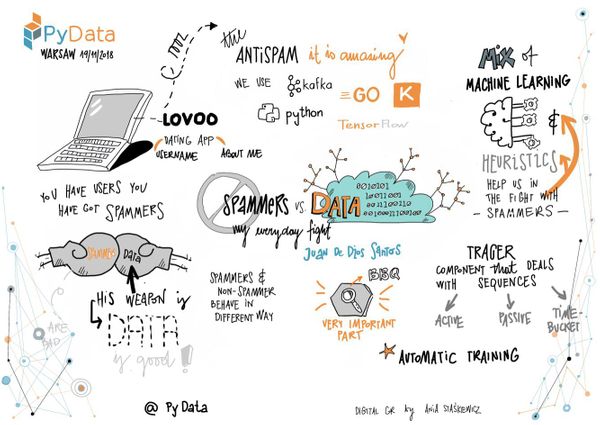 PyData
WARSAW 19/11/2018
the
ANTISPAM it is amazing
WE USE kafka
GO K
python
TensorFlow
MIX of
MACHINE LEARNING
&
HEURISTICS
HELP US IN
THE FIGHT WITH
- SPAMMERS -
LOVOO
DATING APP
USERNAME ABOUT ME
YOU HAVE USERS YOU
HAVE GOT SPAMMERS
SPAMMERS vs. DATA
010101
my everyday fight
Juan De Dios Santos
SPAMMERS Data
HIS WEAPON is
DATA
is good!
ARE
BAD
SPAMMERS &
NON-SPAMMER
BEHAVE IN
DIFFERENT WAY
BBQ
VERY IMPORTANT
PART
TRAGER
COMPONENT that DEALS
WITH SEQUENCES
ACTIVE PASSIVE TIME-
BUCKET
AUTOMATIC TRAINING
@ PyData
DIGITAL GR by